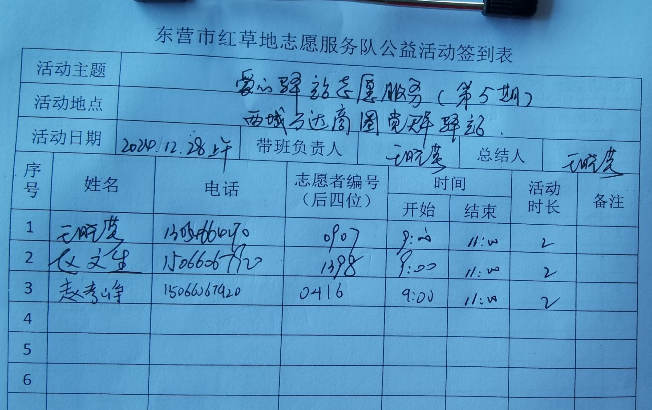 东营市红草地志愿服务队公益活动签到表
活动主题 爱心驿站志愿服务（第5期）
活动地点 西城万达商圈党群驿站
活动日期 2024.12.28上午 带班负责人 王晓英 总结人 王晓英
序号 姓名 电话 志愿者编号（后四位） 时间 开始 结束 活动时长 备注
1 王晓英 0907 9:00 11:00 2
2 赵文生 15066067920 1398 9:00 11:00 2
3 赵秀峰 15066067920 0416 9:00 11:00 2
4
5
6